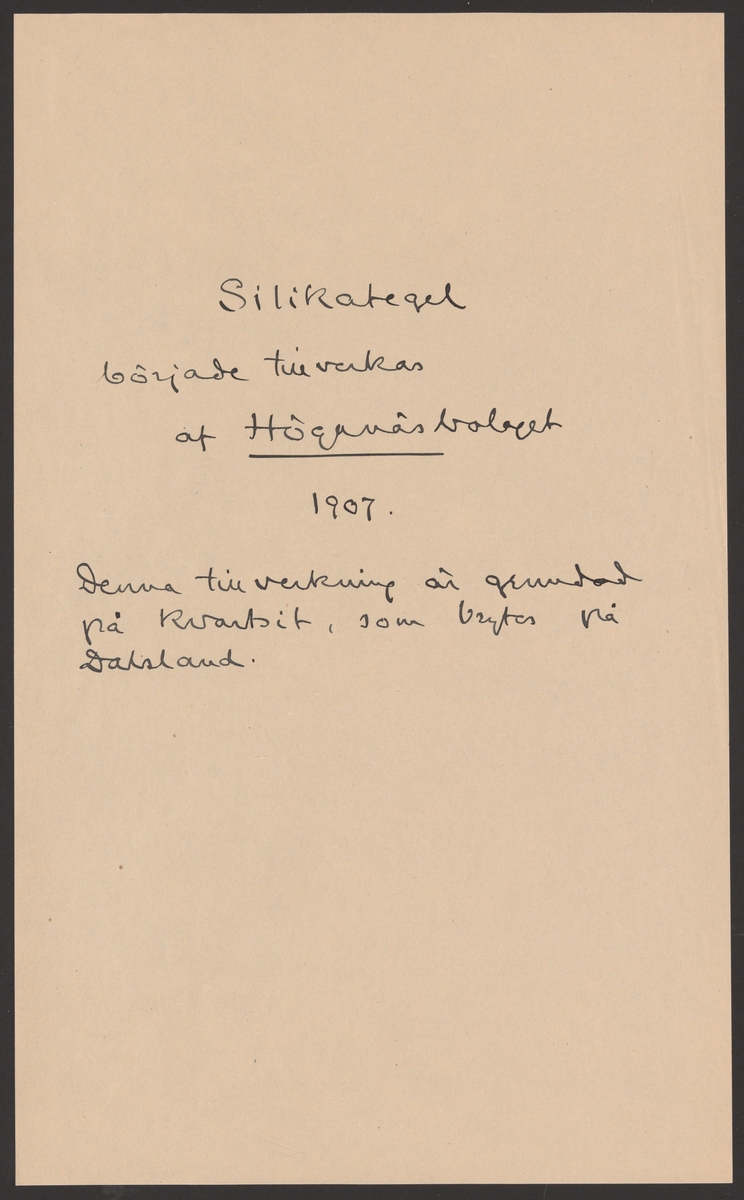 Silikategel
började tillverkas
af Höganäsbolaget
1907.
Denna tillverkning är grundad
på kvartsit, som brytes på
Dalsland.